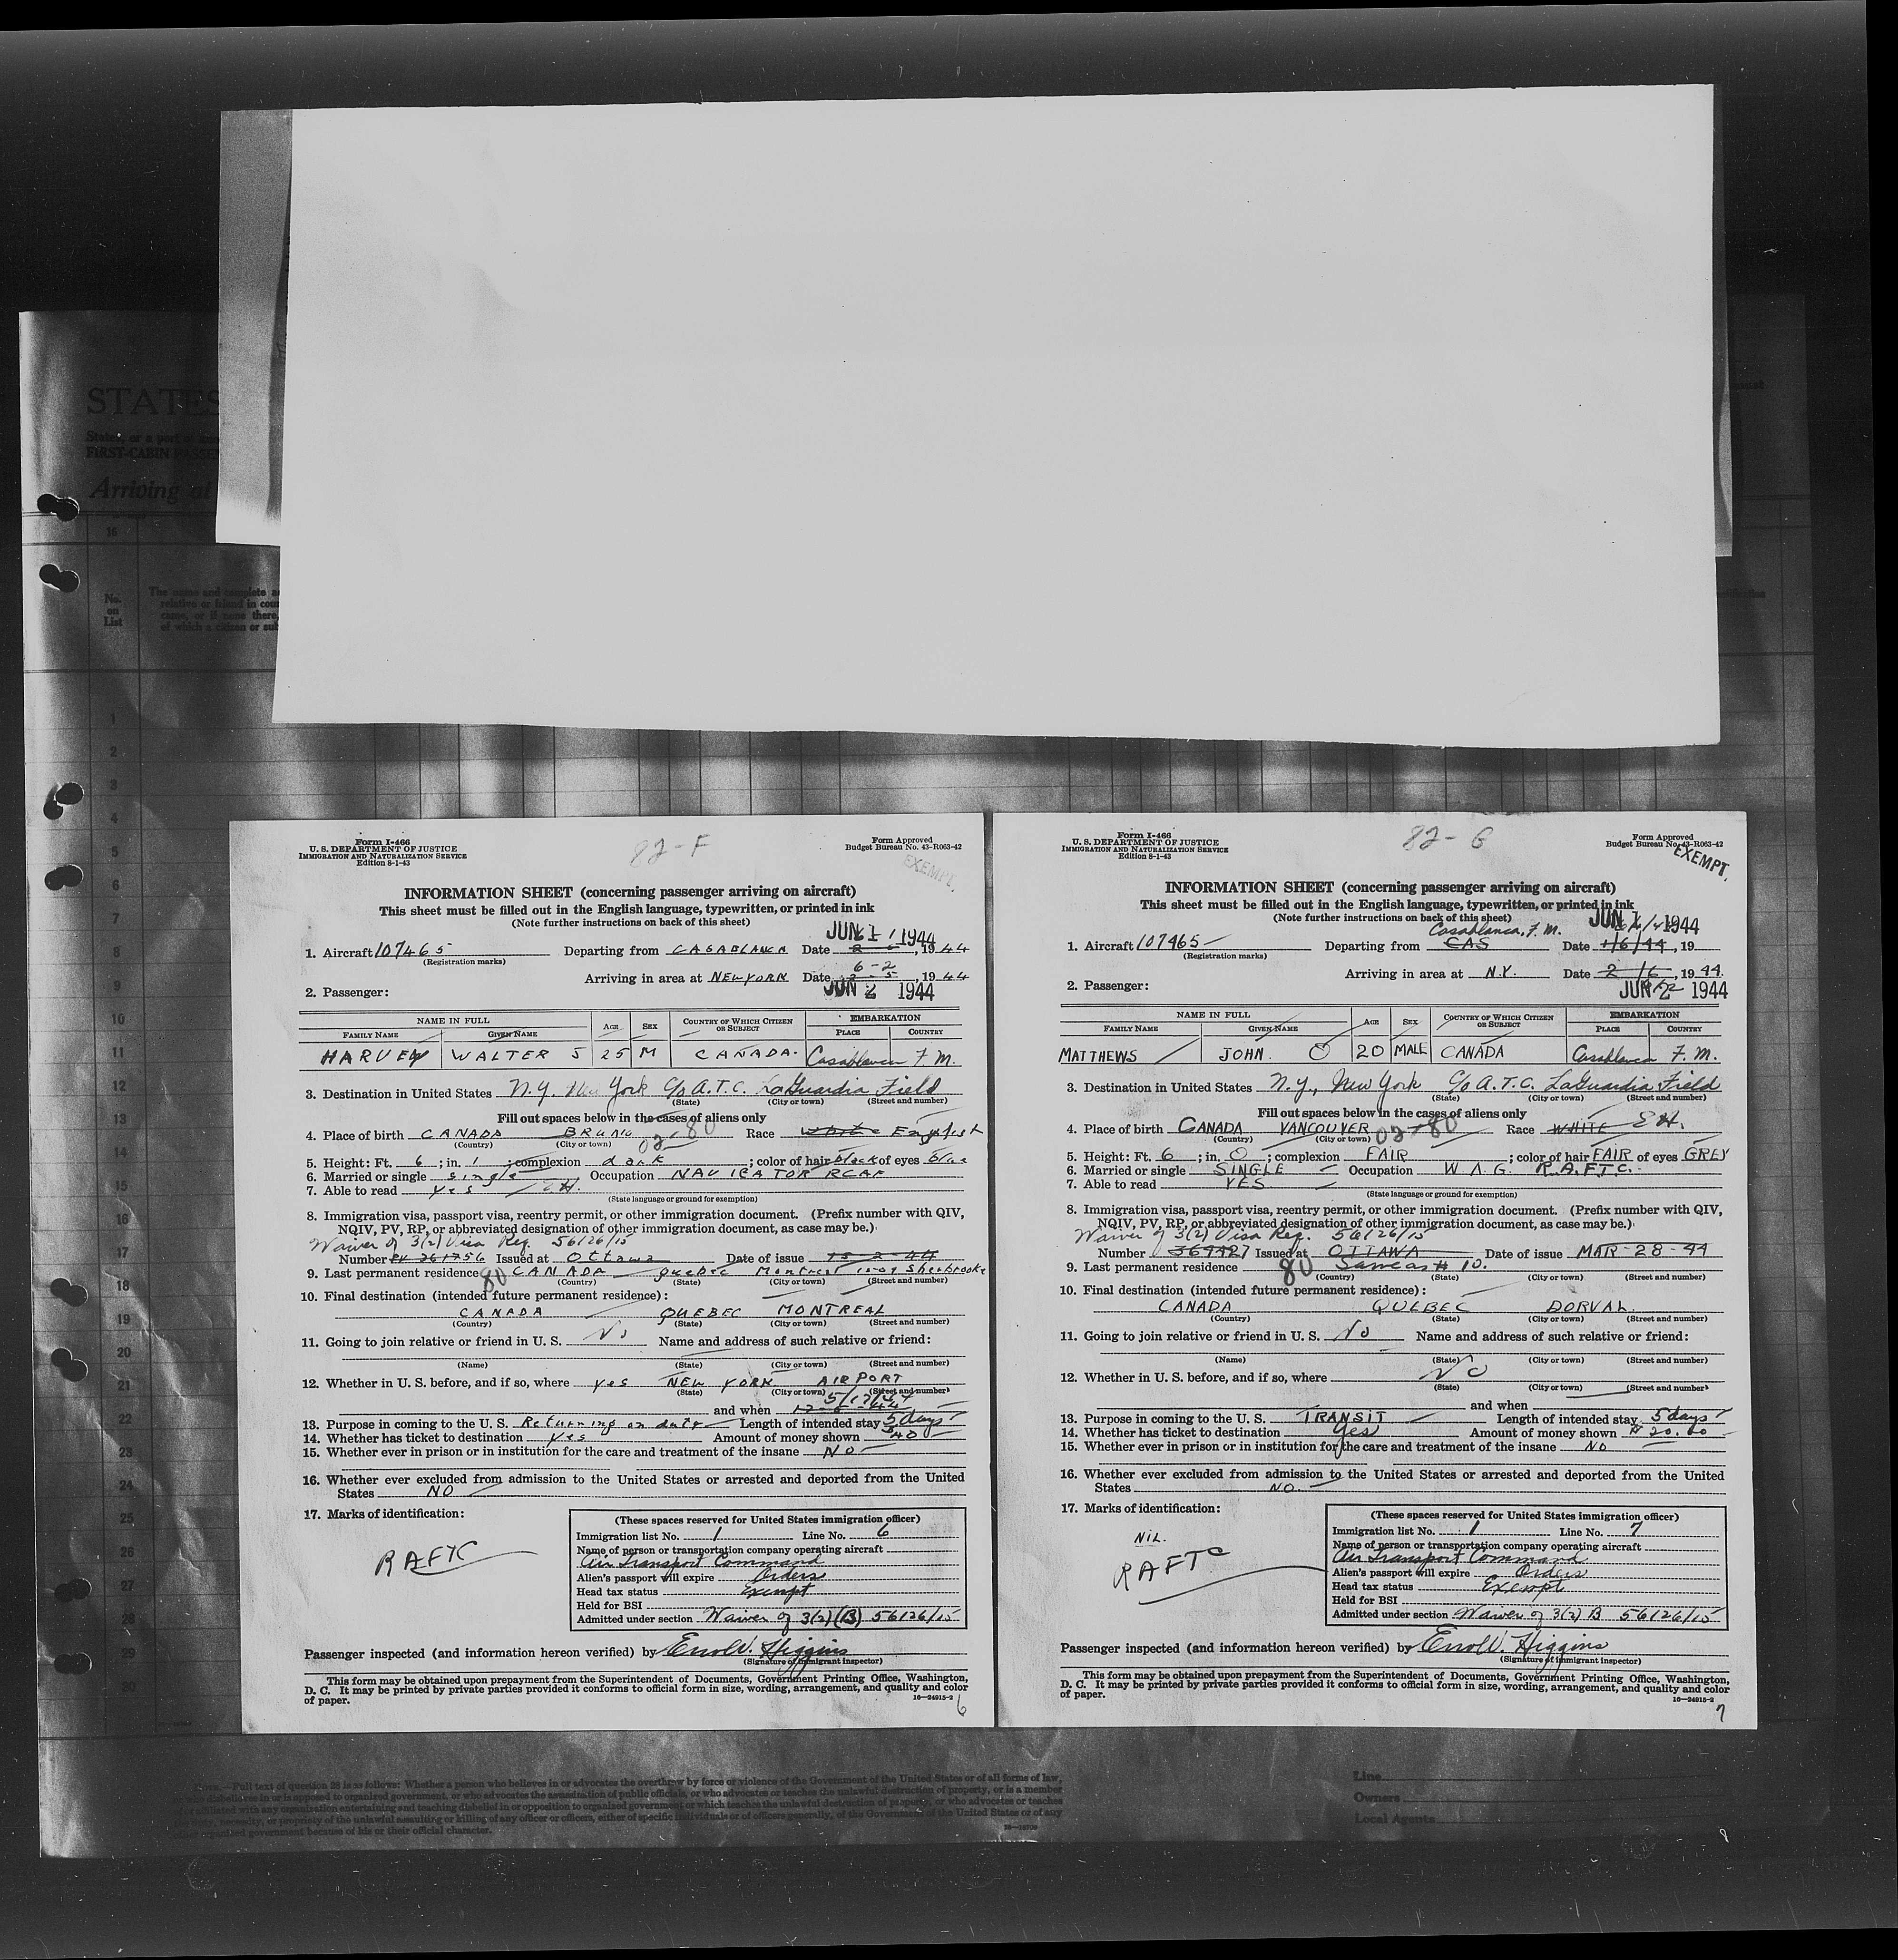 STATES
States, or a port
FIRST-CABIN PASSEN
Arriving at
16
No.
on
List
The name and complete
relative or friend in
came, or if none there,
of which a citizen or
1
2
3
4
5
6
7
8
9
10
11
12
13
14
15
16
17
18
19
20
21
22
23
24
25
26
27
28
29
30
Form I-466
U. S. DEPARTMENT OF JUSTICE
IMMIGRATION AND NATURALIZATION SERVICE
Edition 8-1-43
82-F
Form Approved
Budget Bureau No. 43-R063-42
EXEMPT.
INFORMATION SHEET (concerning passenger arriving on aircraft)
This sheet must be filled out in the English language, typewritten, or printed in ink
(Note further instructions on back of this sheet)
JUN 1 1944
1. Aircraft 107465 Departing from CASABLANCA Date , 19 44
(Registration marks)
6-2
Arriving in area at NEW YORK Date , 19 44
2. Passenger: JUN 2 1944
NAME IN FULL AGE SEX COUNTRY OF WHICH CITIZEN OR SUBJECT EMBARKATION
FAMILY NAME GIVEN NAME PLACE COUNTRY
HARVEY WALTER J 25 M CANADA. Casablanca F. M.
3. Destination in United States N.Y. New York C/o A.T.C. LaGuardia Field
(State) (City or town) (Street and number)
Fill out spaces below in the cases of aliens only
4. Place of birth CANADA BRUNO 02-80 Race White English
(Country) (City or town)
5. Height: Ft. 6 ; in. 1 ; complexion dark ; color of hair black of eyes blue
6. Married or single single Occupation NAVIGATOR RCAF
7. Able to read yes EH.
(State language or ground for exemption)
8. Immigration visa, passport visa, reentry permit, or other immigration document. (Prefix number with QIV,
NQIV, PV, RP, or abbreviated designation of other immigration document, as case may be.)
Waiver of 3(2) Visa Reg. 56126/15
Number Issued at Ottawa Date of issue 15-2-44
9. Last permanent residence 80 CANADA Quebec Montreal Sherbrooke
(Country) (State) (City or town) (Street and number)
10. Final destination (intended future permanent residence):
CANADA QUEBEC MONTREAL
(Country) (State) (City or town) (Street and number)
11. Going to join relative or friend in U. S. No Name and address of such relative or friend:
(Name) (State) (City or town) (Street and number)
12. Whether in U. S. before, and if so, where yes NEW YORK AIRPORT
(State) (City or town) (Street and number)
5/17/44
and when
13. Purpose in coming to the U. S. Returning on duty Length of intended stay 5 days
14. Whether has ticket to destination yes Amount of money shown $40
15. Whether ever in prison or in institution for the care and treatment of the insane No
16. Whether ever excluded from admission to the United States or arrested and deported from the United
States NO
17. Marks of identification:
RAFTC
(These spaces reserved for United States immigration officer)
Immigration list No. 1 Line No. 6
Name of person or transportation company operating aircraft
Air Transport Command
Alien's passport will expire Orders
Head tax status Exempt
Held for BSI
Admitted under section Waiver of 3(2)(B) 56126/15
Passenger inspected (and information hereon verified) by Errol W. Higgins
(Signature of immigrant inspector)
This form may be obtained upon prepayment from the Superintendent of Documents, Government Printing Office, Washington,
D. C. It may be printed by private parties provided it conforms to official form in size, wording, arrangement, and quality and color
of paper.
16—24915-2
6
Form I-466
U. S. DEPARTMENT OF JUSTICE
IMMIGRATION AND NATURALIZATION SERVICE
Edition 8-1-43
82-G
Form Approved
Budget Bureau No. 43-R063-42
EXEMPT.
INFORMATION SHEET (concerning passenger arriving on aircraft)
This sheet must be filled out in the English language, typewritten, or printed in ink
(Note further instructions on back of this sheet)
JUN 1 1944
Casablanca, F. M.
1. Aircraft 107465 Departing from CAS Date 1/6/44 , 19
(Registration marks)
Arriving in area at N.Y. Date 2/6 , 19 44.
2. Passenger: JUN 2 1944
NAME IN FULL AGE SEX COUNTRY OF WHICH CITIZEN OR SUBJECT EMBARKATION
FAMILY NAME GIVEN NAME PLACE COUNTRY
MATTHEWS JOHN. O 20 MALE CANADA Casablanca F. M.
3. Destination in United States N.Y., New York C/o A.T.C. LaGuardia Field
(State) (City or town) (Street and number)
Fill out spaces below in the cases of aliens only
4. Place of birth CANADA VANCOUVER 02-80 Race WHITE EH.
(Country) (City or town)
5. Height: Ft. 6 ; in. 0 ; complexion FAIR ; color of hair FAIR of eyes GREY
6. Married or single SINGLE Occupation W.A.G. R.A.F.T.C.
7. Able to read YES.
(State language or ground for exemption)
8. Immigration visa, passport visa, reentry permit, or other immigration document. (Prefix number with QIV,
NQIV, PV, RP, or abbreviated designation of other immigration document, as case may be.)
Waiver of 3(2) Visa Reg. 56126/15
Number Issued at OTTAWA Date of issue MAR-28-44
9. Last permanent residence 80 Same as # 10.
(Country) (State) (City or town) (Street and number)
10. Final destination (intended future permanent residence):
CANADA QUEBEC DORVAL.
(Country) (State) (City or town) (Street and number)
11. Going to join relative or friend in U. S. No Name and address of such relative or friend:
(Name) (State) (City or town) (Street and number)
12. Whether in U. S. before, and if so, where No
(State) (City or town) (Street and number)
and when
13. Purpose in coming to the U. S. TRANSIT Length of intended stay 5 days
14. Whether has ticket to destination Yes Amount of money shown $20.00
15. Whether ever in prison or in institution for the care and treatment of the insane NO
16. Whether ever excluded from admission to the United States or arrested and deported from the United
States NO.
17. Marks of identification:
NIL.
RAFTC
(These spaces reserved for United States immigration officer)
Immigration list No. 1 Line No. 7
Name of person or transportation company operating aircraft
Air Transport Command
Alien's passport will expire Orders
Head tax status Exempt
Held for BSI
Admitted under section Waiver of 3(2) B 56126/15
Passenger inspected (and information hereon verified) by Errol W. Higgins
(Signature of immigrant inspector)
This form may be obtained upon prepayment from the Superintendent of Documents, Government Printing Office, Washington,
D. C. It may be printed by private parties provided it conforms to official form in size, wording, arrangement, and quality and color
of paper.
16—24915-2
7
NOTE.—Full text of question 28 is as follows: Whether a person who believes in or advocates the overthrow by force or violence of the Government of the United States or of all forms of law,
who disbelieves in or is opposed to organized government, or who advocates the assassination of public officials, or who advocates or teaches the unlawful destruction of property, or is a member
affiliated with any organization entertaining and teaching disbelief in or opposition to organized government or which teaches the unlawful destruction of property, or who advocates or teaches
duty, necessity, or propriety of the unlawful assaulting or killing of any officer or officers, either of specific individuals or of officers generally, of the Government of the United States or of any
organized government because of his or their official character.
Line
Owners
Local Agents